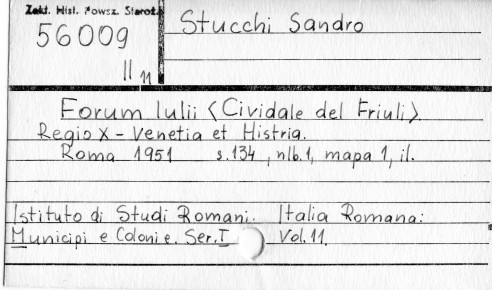 Zakł. Hist. Powsz. Staroż.
56009
II 11
Stucchi Sandro
Forum Iulii <Cividale del Friuli>.
Regio X - Venetia et Histria.
Roma 1951 s.134, nlb.1, mapa 1, il.
Istituto di Studi Romani. Italia Romana:
Municipi e Colonie. Ser. I Vol. 11.